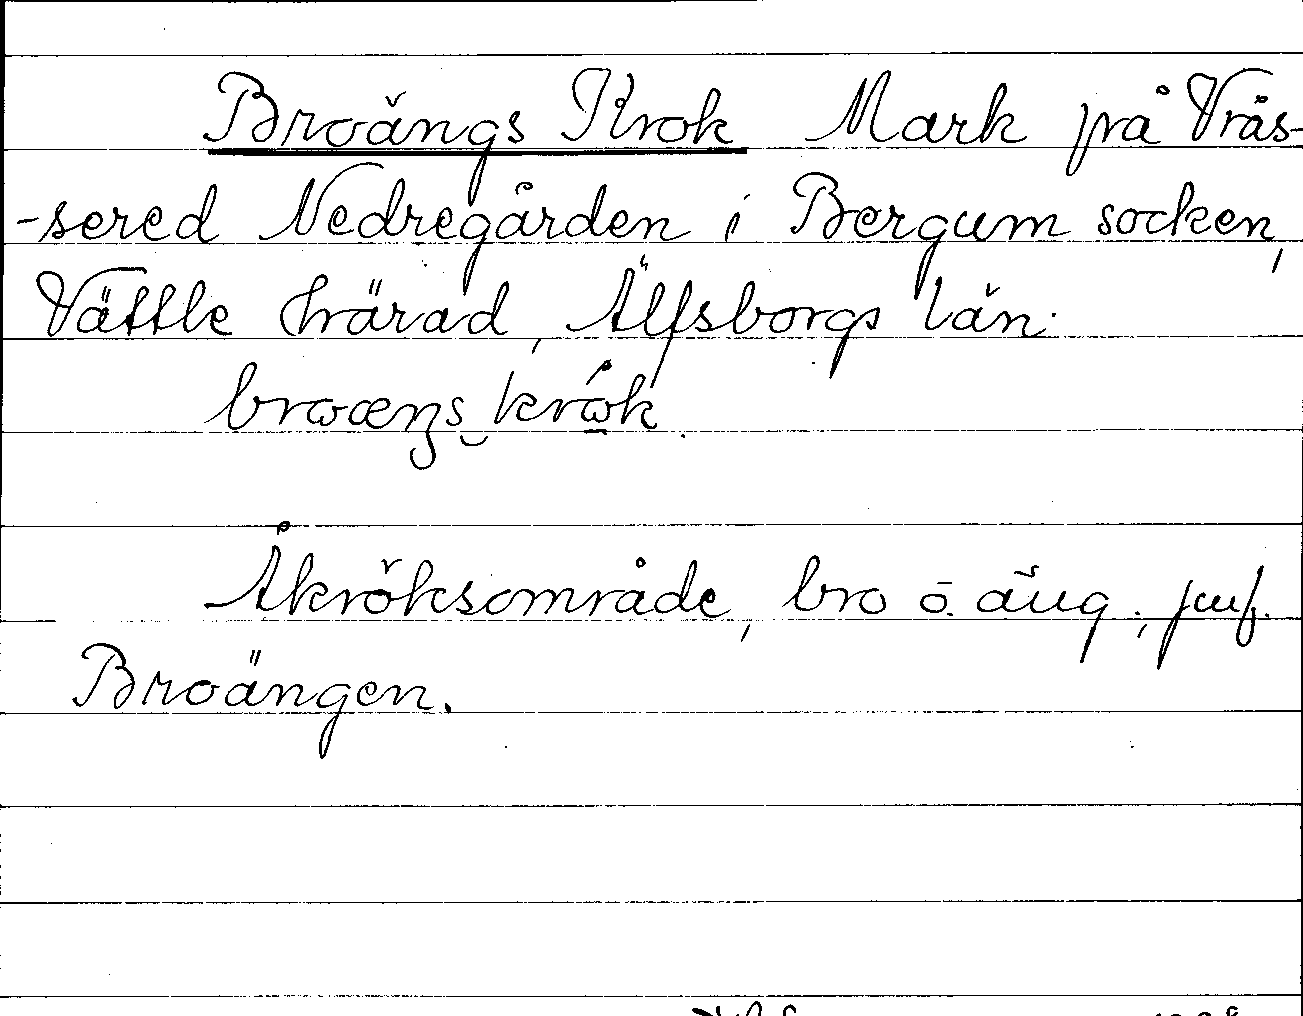 Broängs Krok Mark på Vrås-
-sered Nedregården i Bergum socken,
Vättle härad, Älfsborgs län.
Åkröksområde, bro o. äng; jmf.
Broängen.